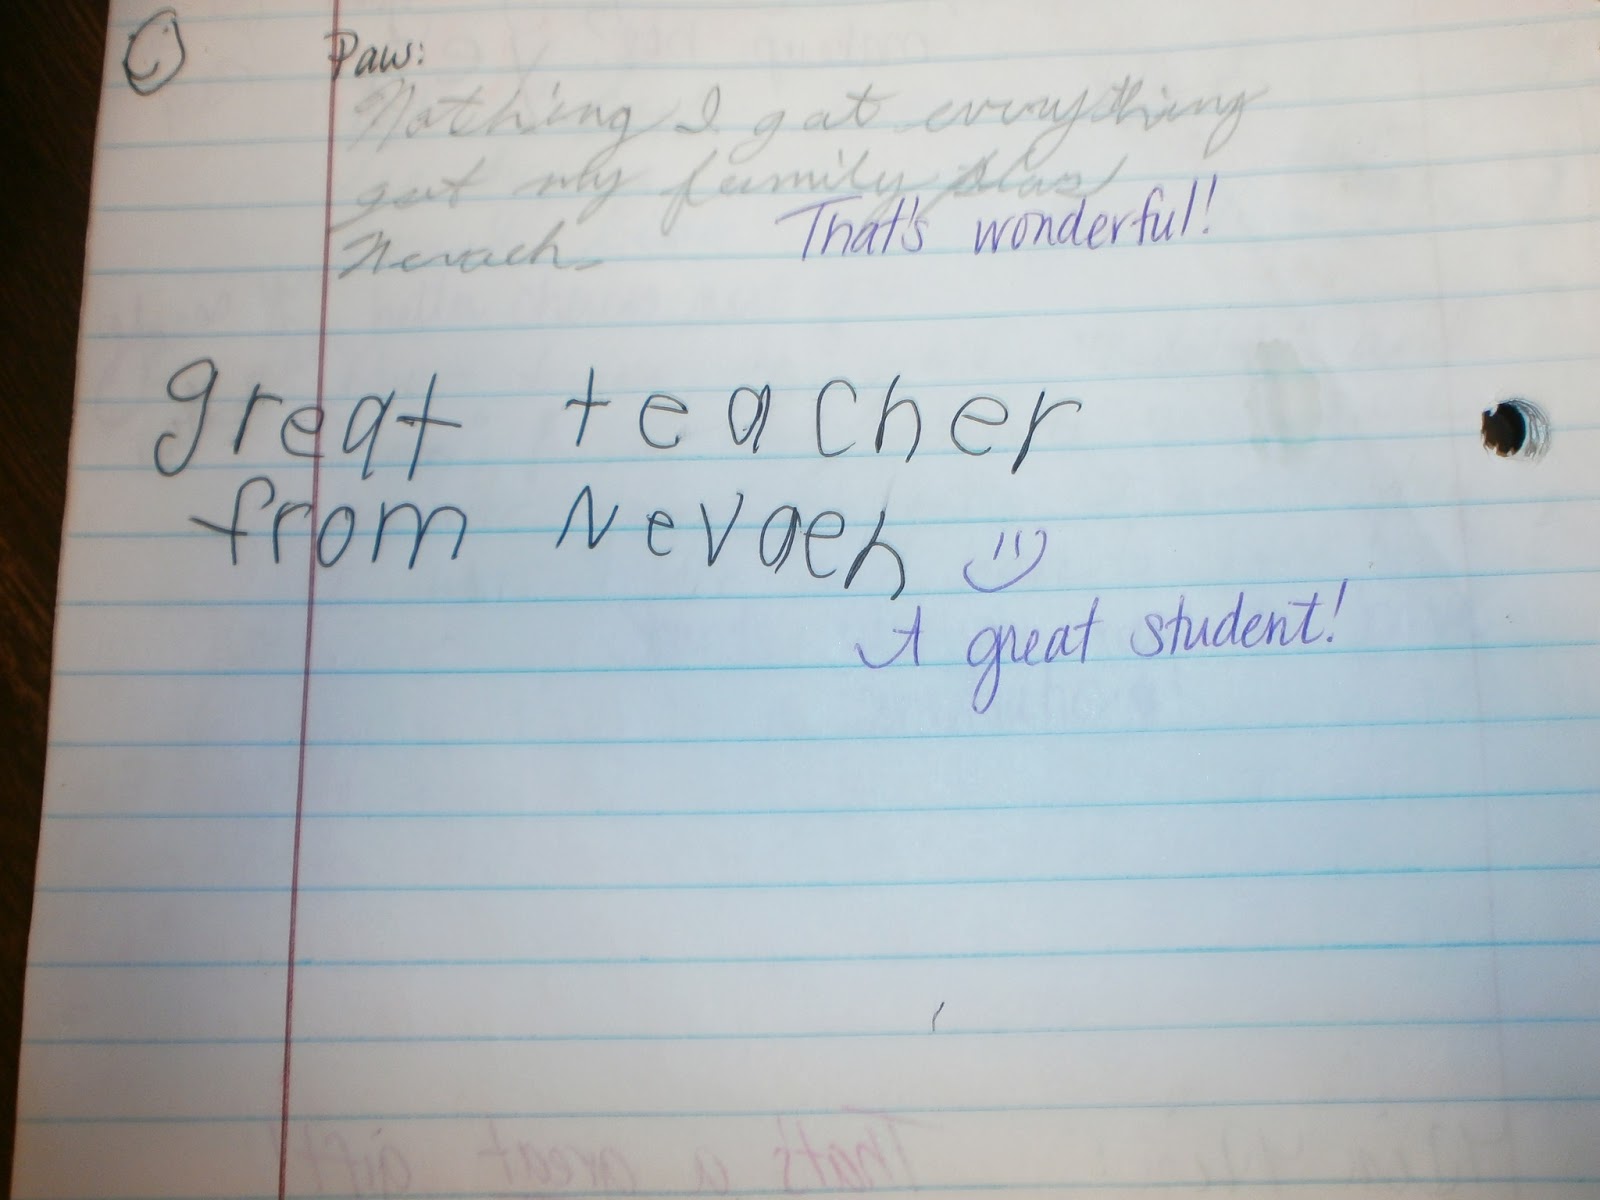 Paw:
Nothing I got everything
got my family plus
Nevaeh.
That's wonderful!
great teacher
from Nevaeh
A great student!
That's a great gift!